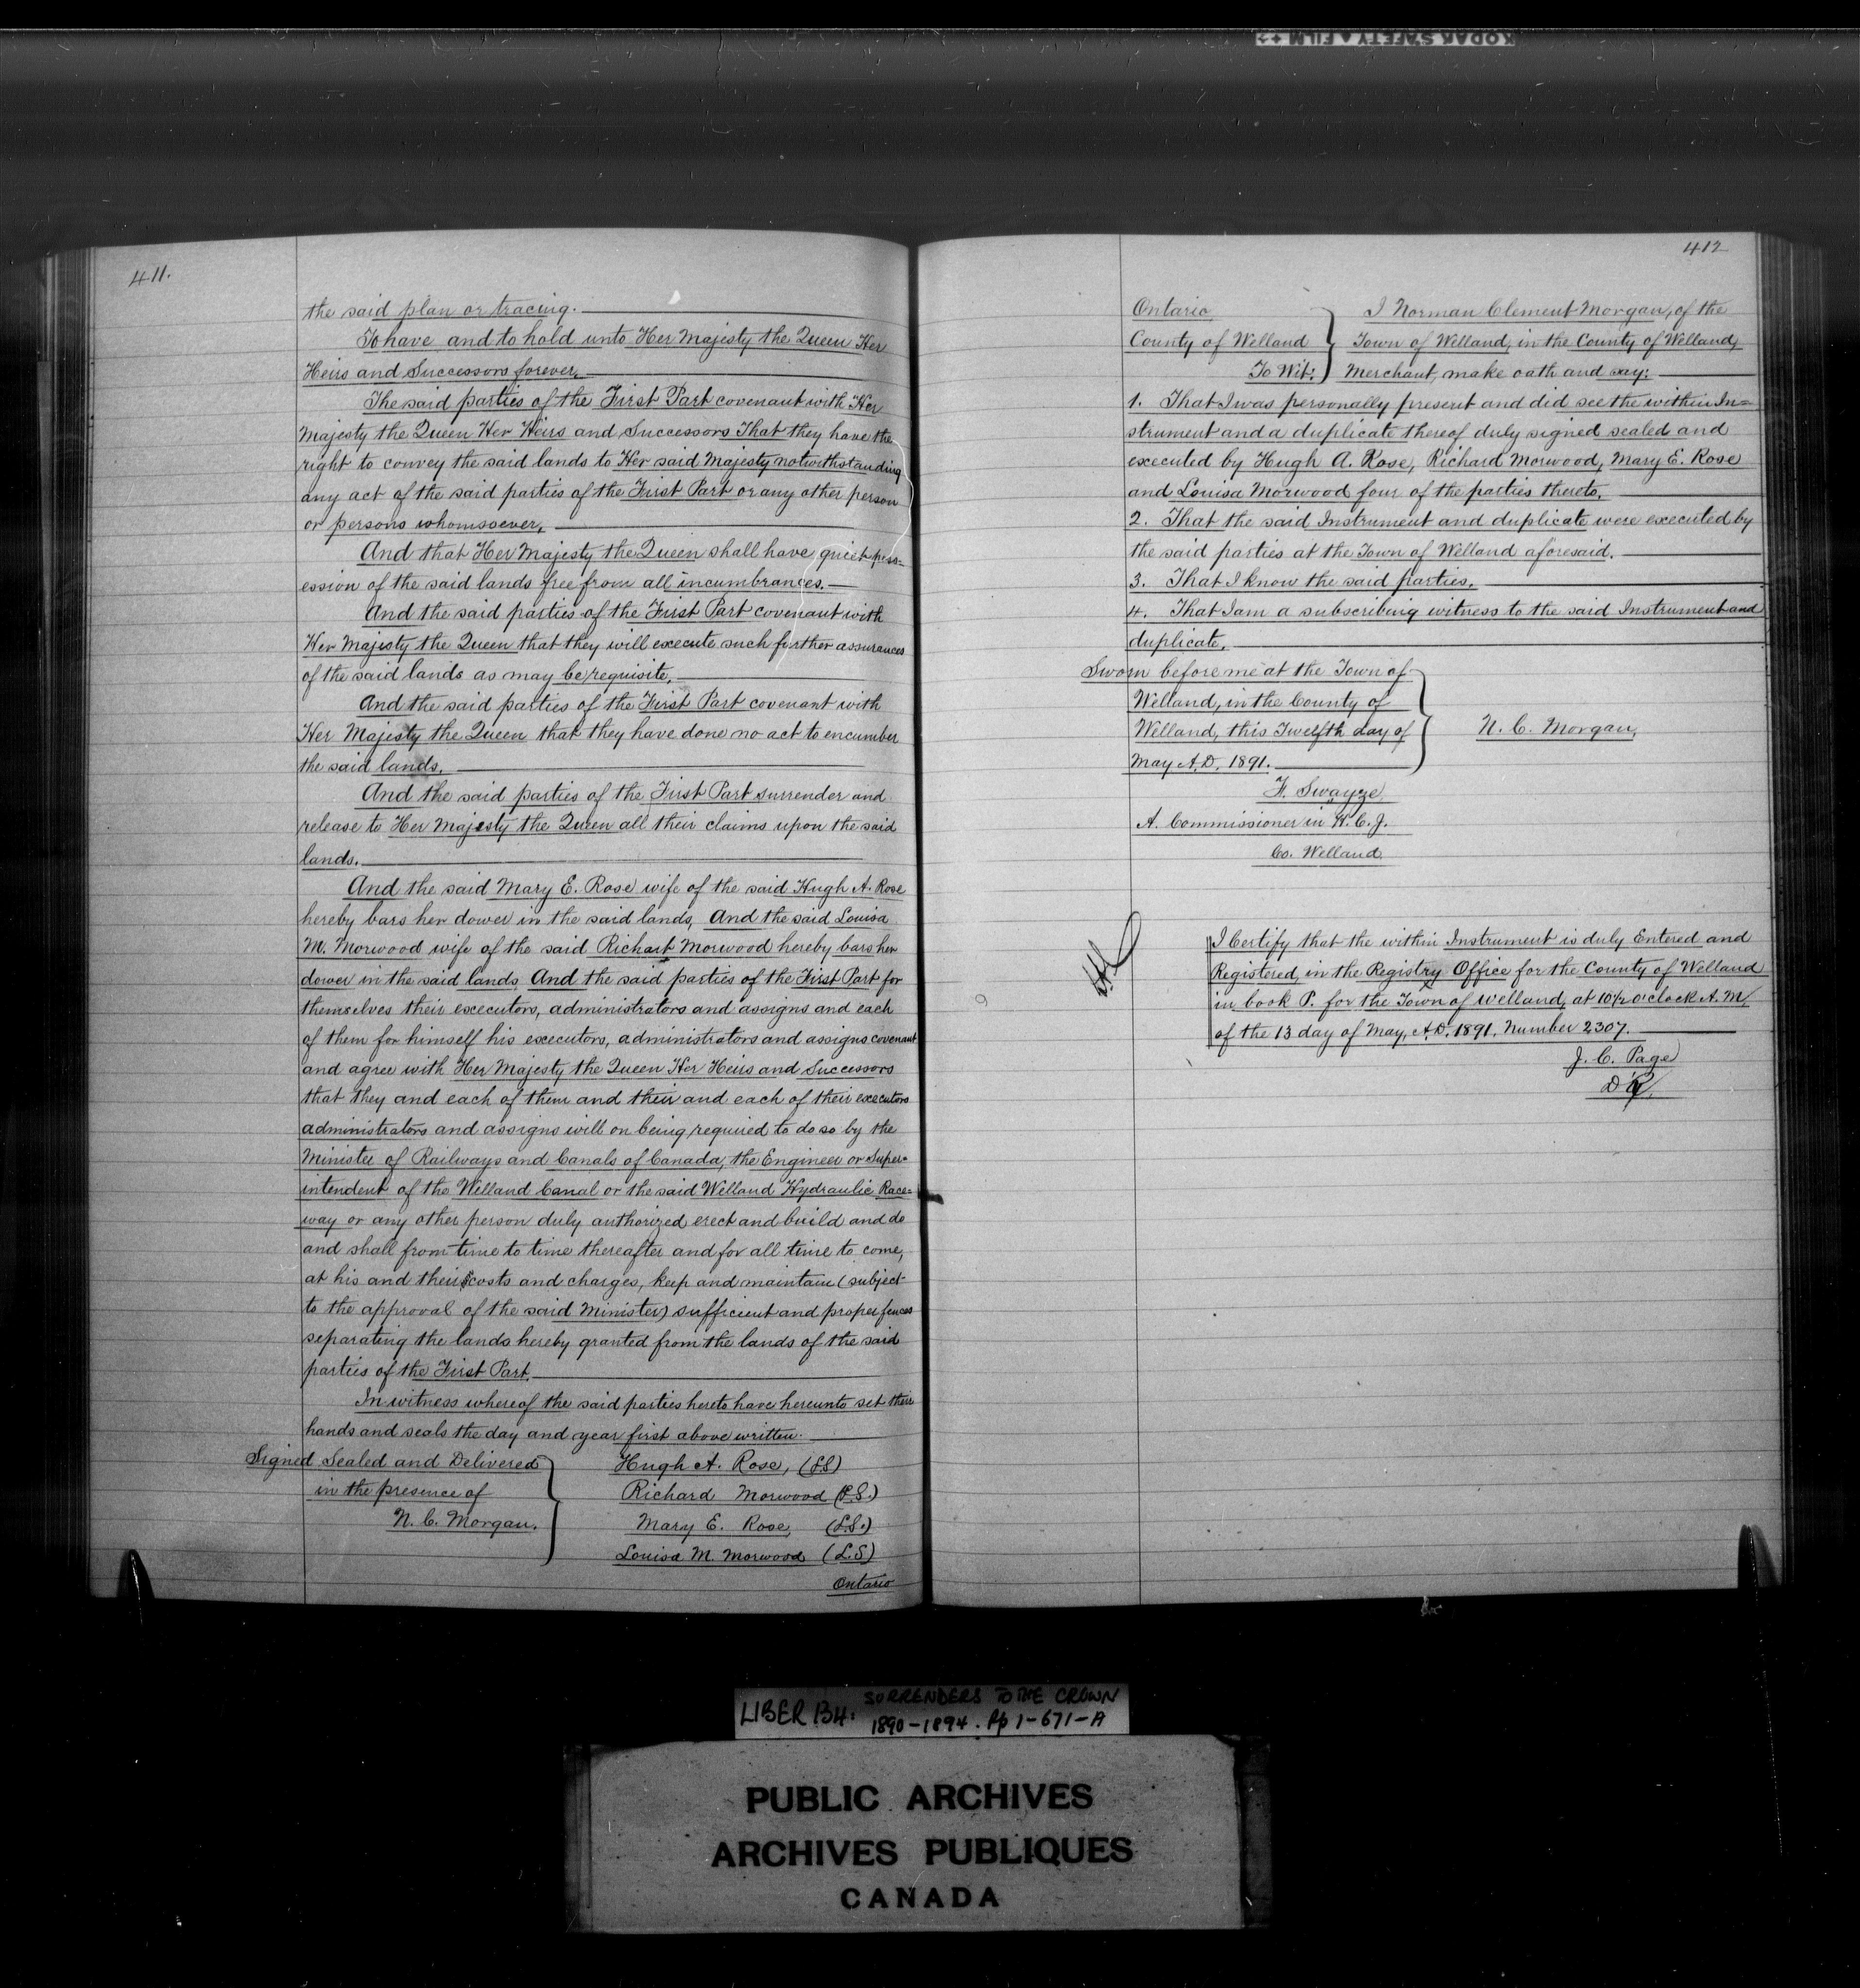 KODAK SAFETY FILM
411.
the said plan or tracing.
To have and to hold unto Her Majesty the Queen Her
Heirs and Successors forever.
The said parties of the First Part covenant with Her
Majesty the Queen Her Heirs and Successors That they have the
right to convey the said lands to Her said Majesty notwithstanding
any act of the said parties of the First Part or any other person
or persons whomsoever.
And that Her Majesty the Queen shall have quiet poss=
ession of the said lands free from all incumbrances.
And the said parties of the First Part covenant with
Her Majesty the Queen that they will execute such further assurances
of the said lands as may be requisite.
And the said parties of the First Part covenant with
Her Majesty the Queen that they have done no act to encumber
the said lands.
And the said parties of the First Part surrender and
release to Her Majesty the Queen all their claims upon the said
lands.
And the said Mary E. Rose wife of the said Hugh A. Rose
hereby bars her dower in the said lands, And the said Louisa
M. Morwood wife of the said Richart Morwood hereby bars her
dower in the said lands And the said parties of the First Part for
themselves their executors, administrators and assigns and each
of them for himself his executors, administrators and assigns covenant
and agree with Her Majesty the Queen Her Heirs and Successors
that they and each of them and their and each of their executors
administrators and assigns will on being required to do so by the
Minister of Railways and Canals of Canada, the Engineer or Super=
intendent of the Welland Canal or the said Welland Hydraulic Race=
way or any other person duly authorized erect and build and do
and shall from time to time thereafter and for all time to come,
at his and their costs and charges, keep and maintain (subject
to the approval of the said Minister) sufficient and proper fences
separating the lands hereby granted from the lands of the said
parties of the First Part.
In witness whereof the said parties hereto have hereunto set their
hands and seals the day and year first above written.
Signed Sealed and Delivered
in the presence of
N. C. Morgan.
Hugh A. Rose, (LS)
Richard Morwood (L.S.)
Mary E. Rose, (L.S.)
Louisa M. Morwood (L.S)
Ontario
412
Ontario
County of Welland
To Wit:
I Norman Clement Morgan, of the
Town of Welland, in the County of Welland,
Merchant, make oath and say:
1. That I was personally present and did see the within In=
strument and a duplicate thereof duly signed sealed and
executed by Hugh A. Rose, Richard Morwood, Mary E. Rose
and Louisa Morwood four of the parties thereto.
2. That the said Instrument and duplicate were executed by
the said parties at the Town of Welland aforesaid.
3. That I know the said parties.
4. That I am a subscribing witness to the said Instrument and
duplicate.
Sworn before me at the Town of
Welland, in the County of
Welland, this Twelfth day of
May A.D. 1891.
N. C. Morgan.
F. Swayze
A. Commissioner in H. C. J.
Co. Welland.
I Certify that the within Instrument is duly Entered and
Registered, in the Registry Office for the County of Welland
in book P. for the Town of Welland, at 10 1/2 o'clock A.M.
of the 13 day of May, A.D. 1891. Number 2307.
J. C. Page
D R.
LIBER 134: SURRENDERS TO THE CROWN
1890-1894. Pp 1-671-A
PUBLIC ARCHIVES
ARCHIVES PUBLIQUES
CANADA